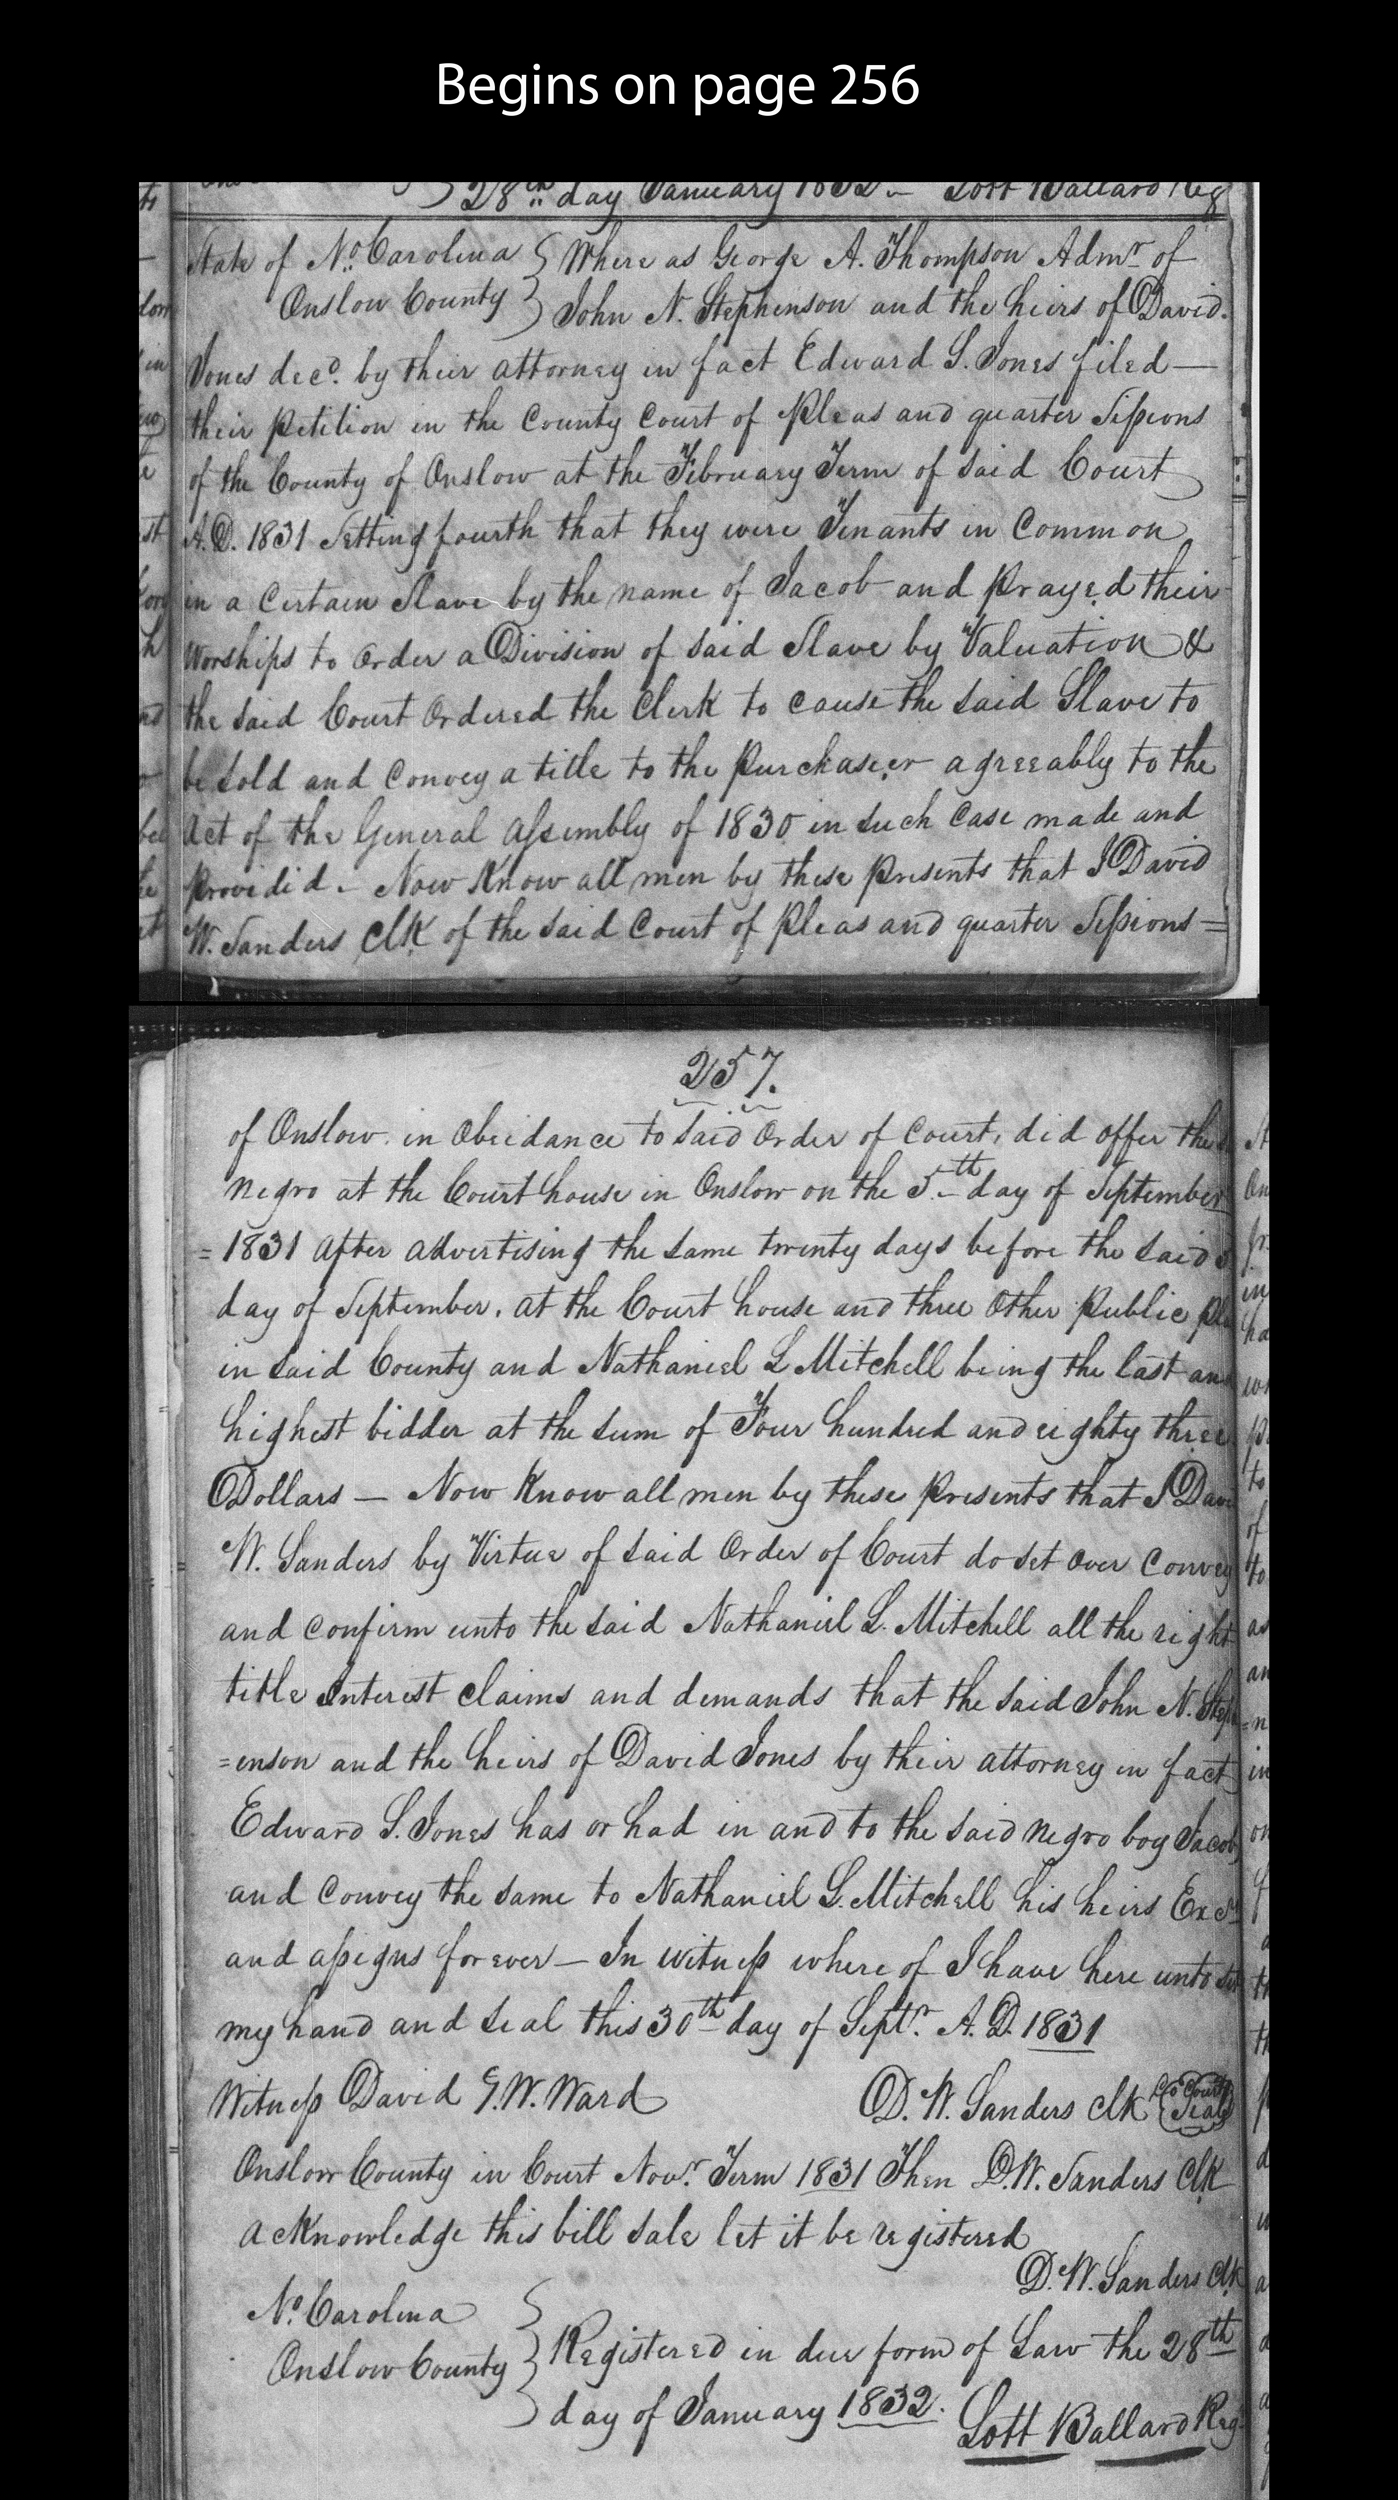 Begins on page 256
28th day January 1832 – Lott Ballard Reg
State of No. Carolina } Where as George A. Thompson Admr of
Onslow County } John N. Stephenson and the heirs of David
Jones decd. by their attorney in fact Edward S. Jones filed —
their petition in the County Court of Pleas and quarter Sessions
of the County of Onslow at the February Term of said Court
A.D. 1831 Setting fourth that they were Tenants in Common
in a Certain Slave by the name of Jacob and Prayed their
Worships to order a Division of said Slave by Valuation &
the said Court Ordered the Clerk to cause the said Slave to
be sold and Convey a title to the Purchaseer agreeably to the
Act of the General Assembly of 1830 in such Case made and
Provided – Now Know all men by these Presents that I David
W. Sanders Clk of the said Court of Pleas and quarter Sessions =
257.
of Onslow in Obeidance to said Order of Court, did offer the
Negro at the Court house in Onslow on the 5th day of September
= 1831 After advertising the same twenty days before the said
day of September, at the Court house and three Other Public
in said County and Nathaniel L Mitchell being the last and
highest bidder at the sum of Four hundred and eighty three
Dollars — Now Know all men by these Presents that I
W. Sanders by Virtue of said Order of Court do set over Convey
and Confirm unto the said Nathaniel L. Mitchell all the right
title Interest Claims and demands that the said John N. Steph
=enson and the heirs of David Jones by their attorney in fact
Edward S. Jones has or had in and to the said Negro boy Jacob
and Convey the same to Nathaniel L. Mitchell his heirs Exrs
and assigns forever — In witness where of I have here unto set
my hand and seal this 30th day of Septr. A.D. 1831
Witness David G. W. Ward D. W. Sanders Clk Co Court Seal
Onslow County in Court Novr. Term 1831 Then D. W. Sanders Clk
acknowledge this bill sale let it be registered
D. W. Sanders Clk
No. Carolina }
Onslow County } Registered in due form of Law the 28th
day of January 1832. Lott Ballard Reg